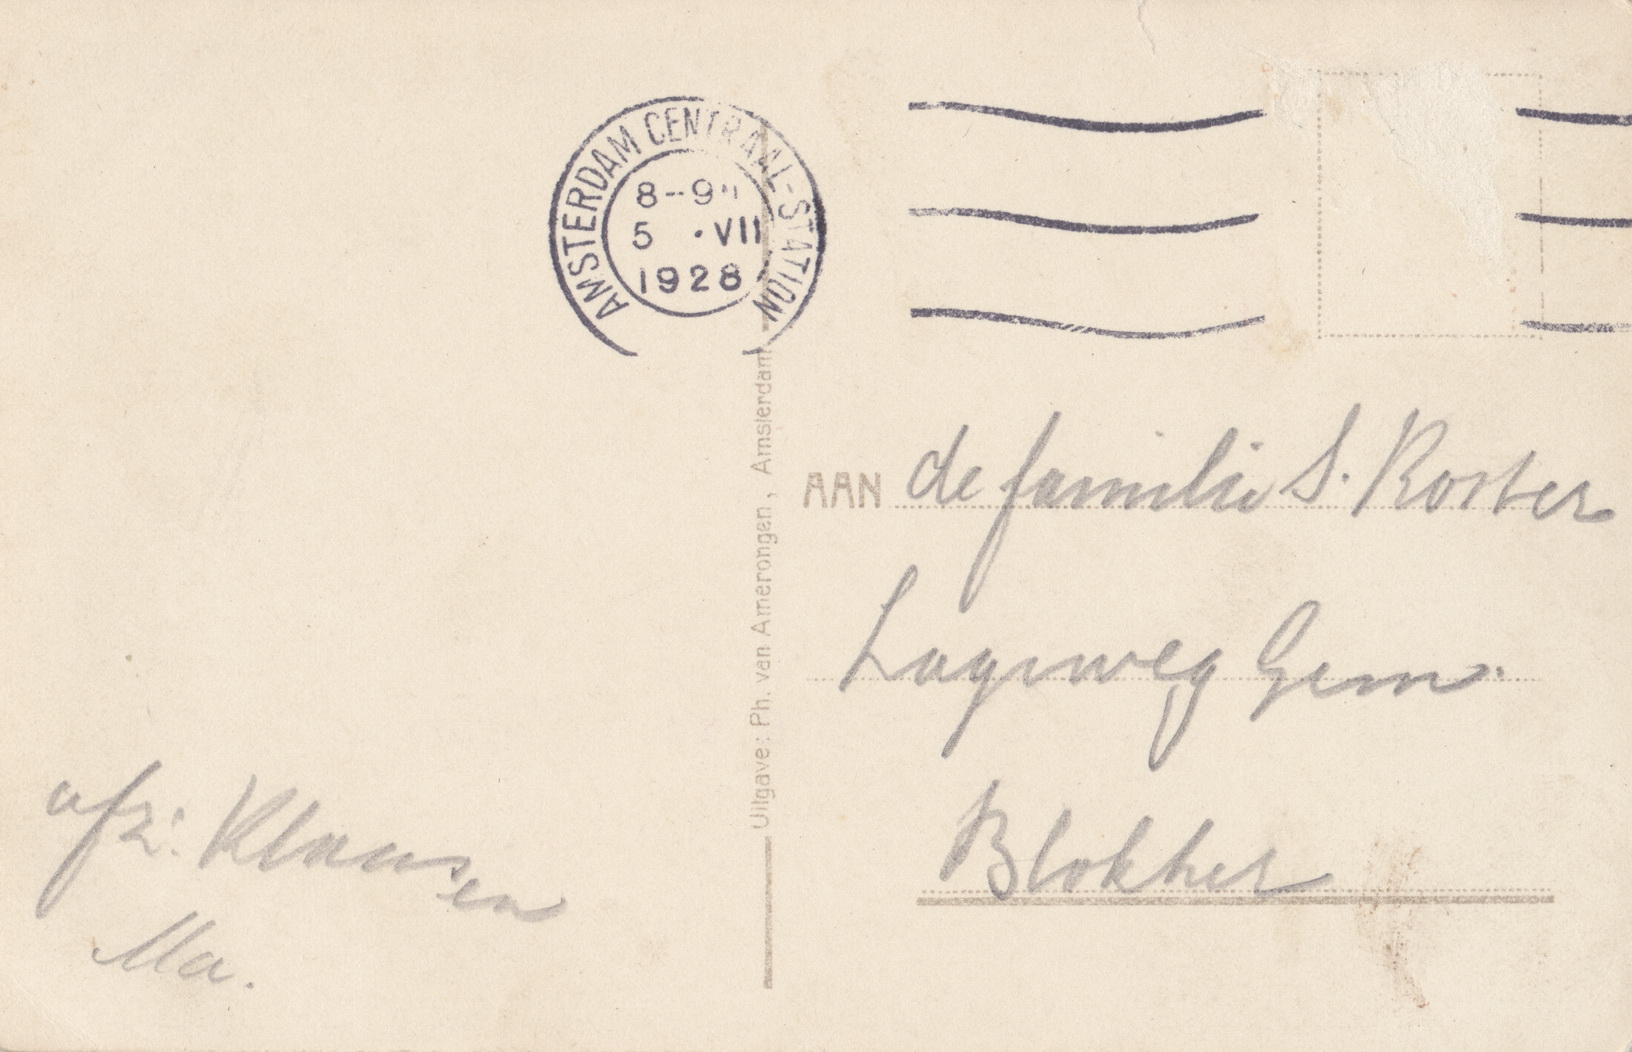 AMSTERDAM CENTRAAL-STATION
8-9
5 · VII
1928
Uitgave: Ph. van Amerongen, Amsterdam
AAN de familie S. Koster
Lageweg Gem.
Blokker
afz: Klaas
en
Ma.